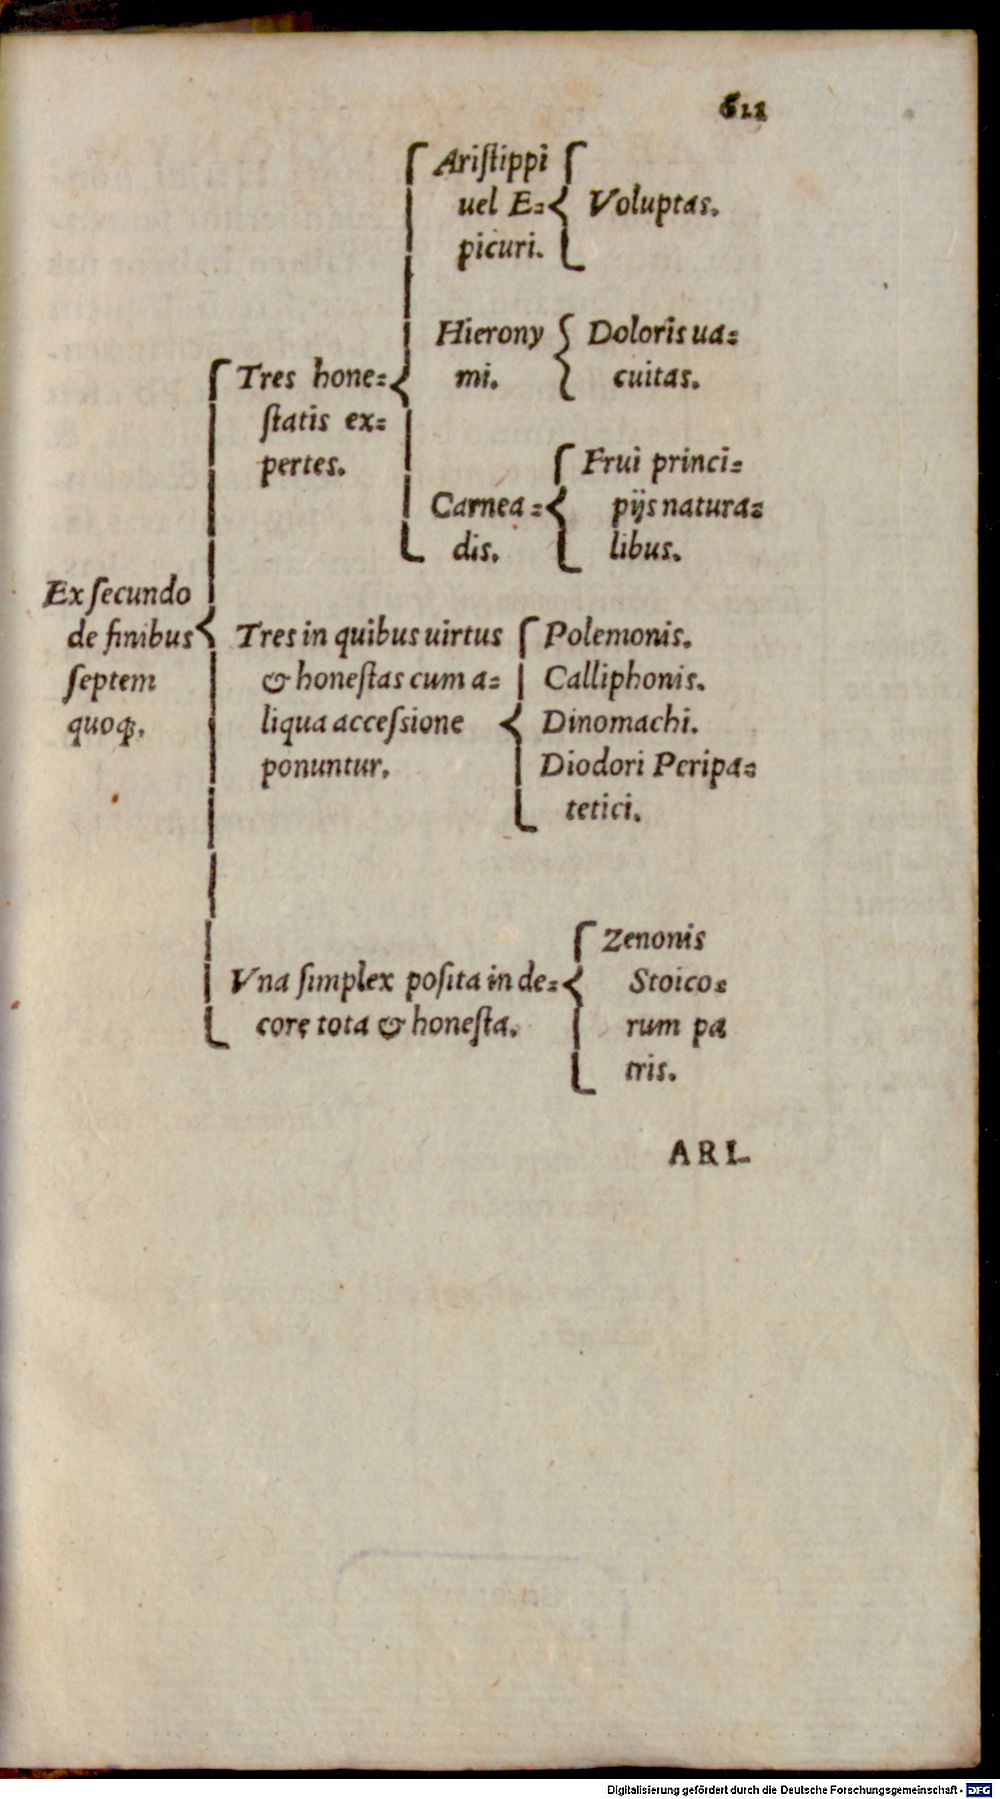 612
Ex secundo
de finibus
septem
quoqꝫ.
Tres hone=
statis ex=
pertes.
Aristippi
uel E=
picuri.
Voluptas.
Hierony
mi.
Doloris ua=
cuitas.
Carnea=
dis.
Frui princi=
pijs natura=
libus.
Tres in quibus uirtus
& honestas cum a=
liqua accessione
ponuntur.
Polemonis.
Calliphonis.
Dinomachi.
Diodori Peripa=
tetici.
Vna simplex posita in de=
core tota & honesta.
Zenonis
Stoico=
rum pa
tris.
ARI-
Digitalisierung gefördert durch die Deutsche Forschungsgemeinschaft - DFG